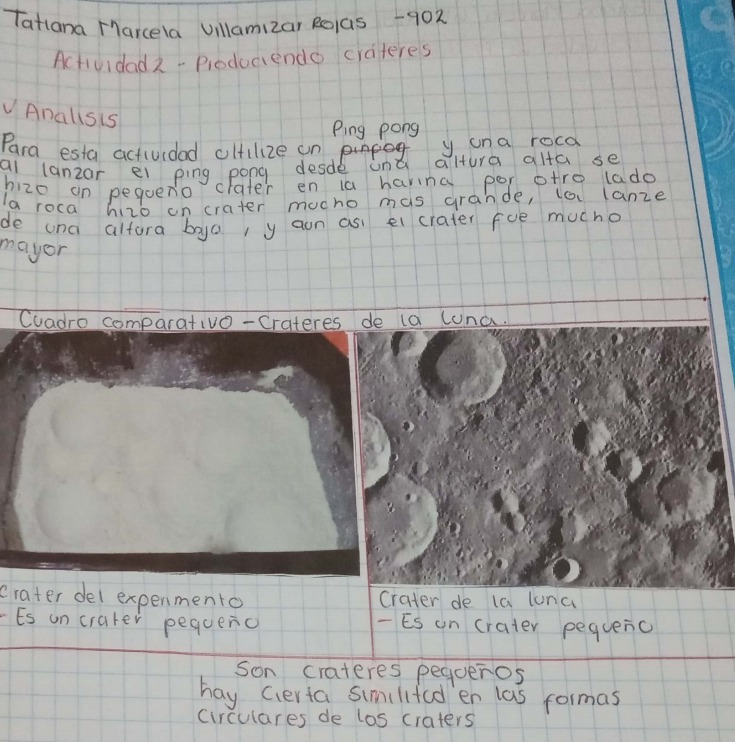 Tatiana Marcela Villamizar Rojas -902
Actividad 2 - Produciendo cráteres
√ Analisis
Ping pong
Para esta actividad ultilize un pinpog y una roca
al lanzar el ping pong desde una altura alta se
hizo un pequeño crater en la harina por otro lado
la roca hizo un crater mucho mas grande, la lanze
de una altura baja, y aun asi el crater fue mucho
mayor
Cuadro comparativo - Crateres de la luna.
crater del experimento
- Es un crater pequeño
Crater de la luna
- Es un crater pequeño
Son crateres pequeños
hay cierta similitud en las formas
circulares de los craters